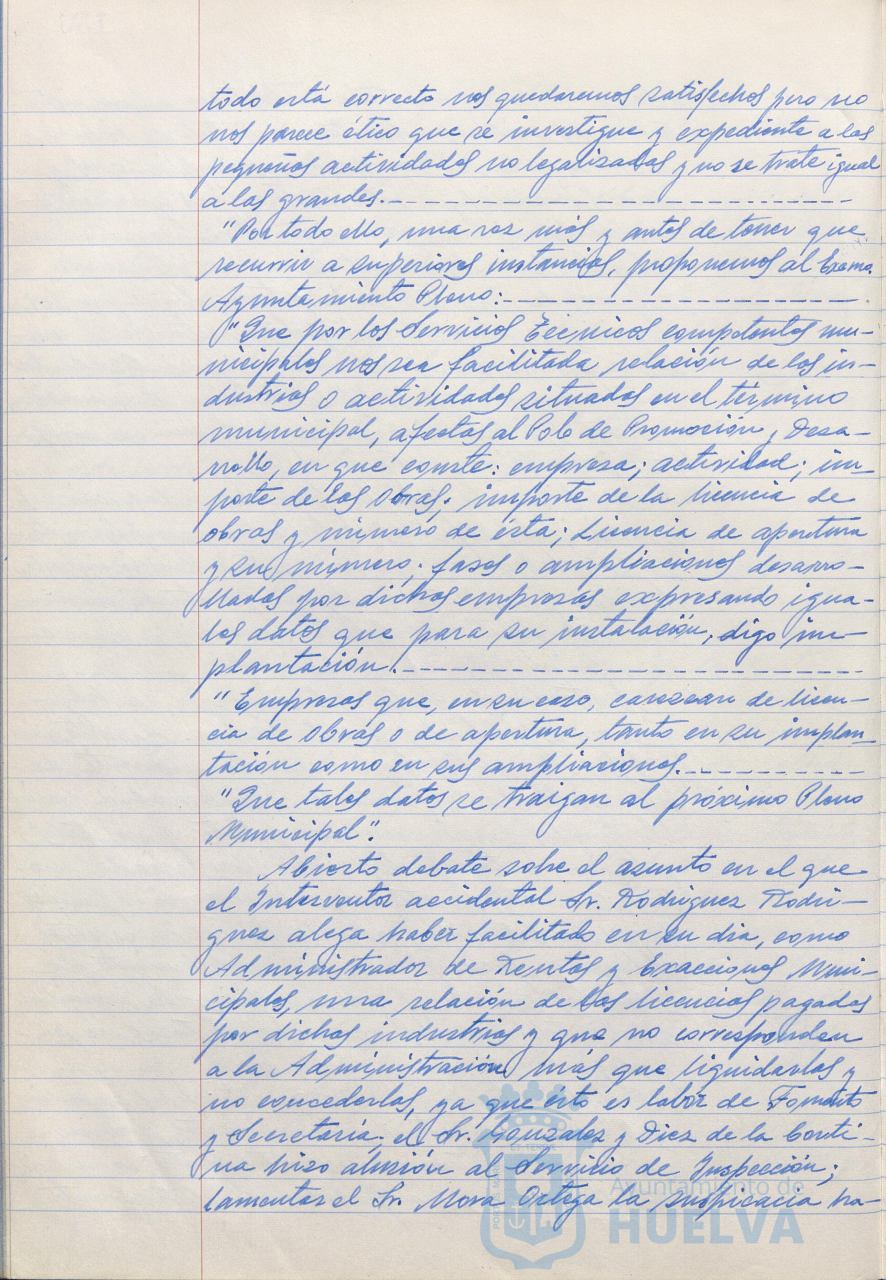 todo está correcto nos quedaremos satisfechos pero no
nos parece ético que se investigue y expediente a las
pequeñas actividades no legalizadas y no se trate igual
a las grandes.
"Por todo ello, una vez más y antes de tener que
recurrir a superiores instancias, proponemos al Excmo.
Ayuntamiento Pleno:
"Que por los Servicios Técnicos competentes mu-
nicipales nos sea facilitada relación de las in-
dustrias o actividades situadas en el término
municipal, afectas al Polo de Promoción y Desa-
rrollo, en que conste: empresa; actividad; im-
porte de las obras; importe de la licencia de
obras y número de ésta; Licencia de apertura
y su número; fases o ampliaciones desarro-
lladas por dichas empresas expresando igua-
les datos que para su instalación, digo im-
plantación.
"Empresas que, en su caso, carezcan de licen-
cia de obras o de apertura, tanto en su implan-
tación como en sus ampliaciones.
"Que tales datos se traigan al próximo Pleno
Municipal".
Abierto debate sobre el asunto en el que
el Interventor accidental Sr. Rodríguez Rodrí-
guez alega haber facilitado en su día, como
Administrador de Rentas y Exacciones Muni-
cipales, una relación de las licencias pagadas
por dichas industrias y que no corresponden
a la Administración más que liquidarlas y
no concederlas, ya que ésto es labor de Fomento
y Secretaría; el Sr. González y Díez de la Corti-
na hizo alusión al Servicio de Inspección;
lamentar el Sr. Mora Ortega la suspicacia ha-
Ayuntamiento de
HUELVA